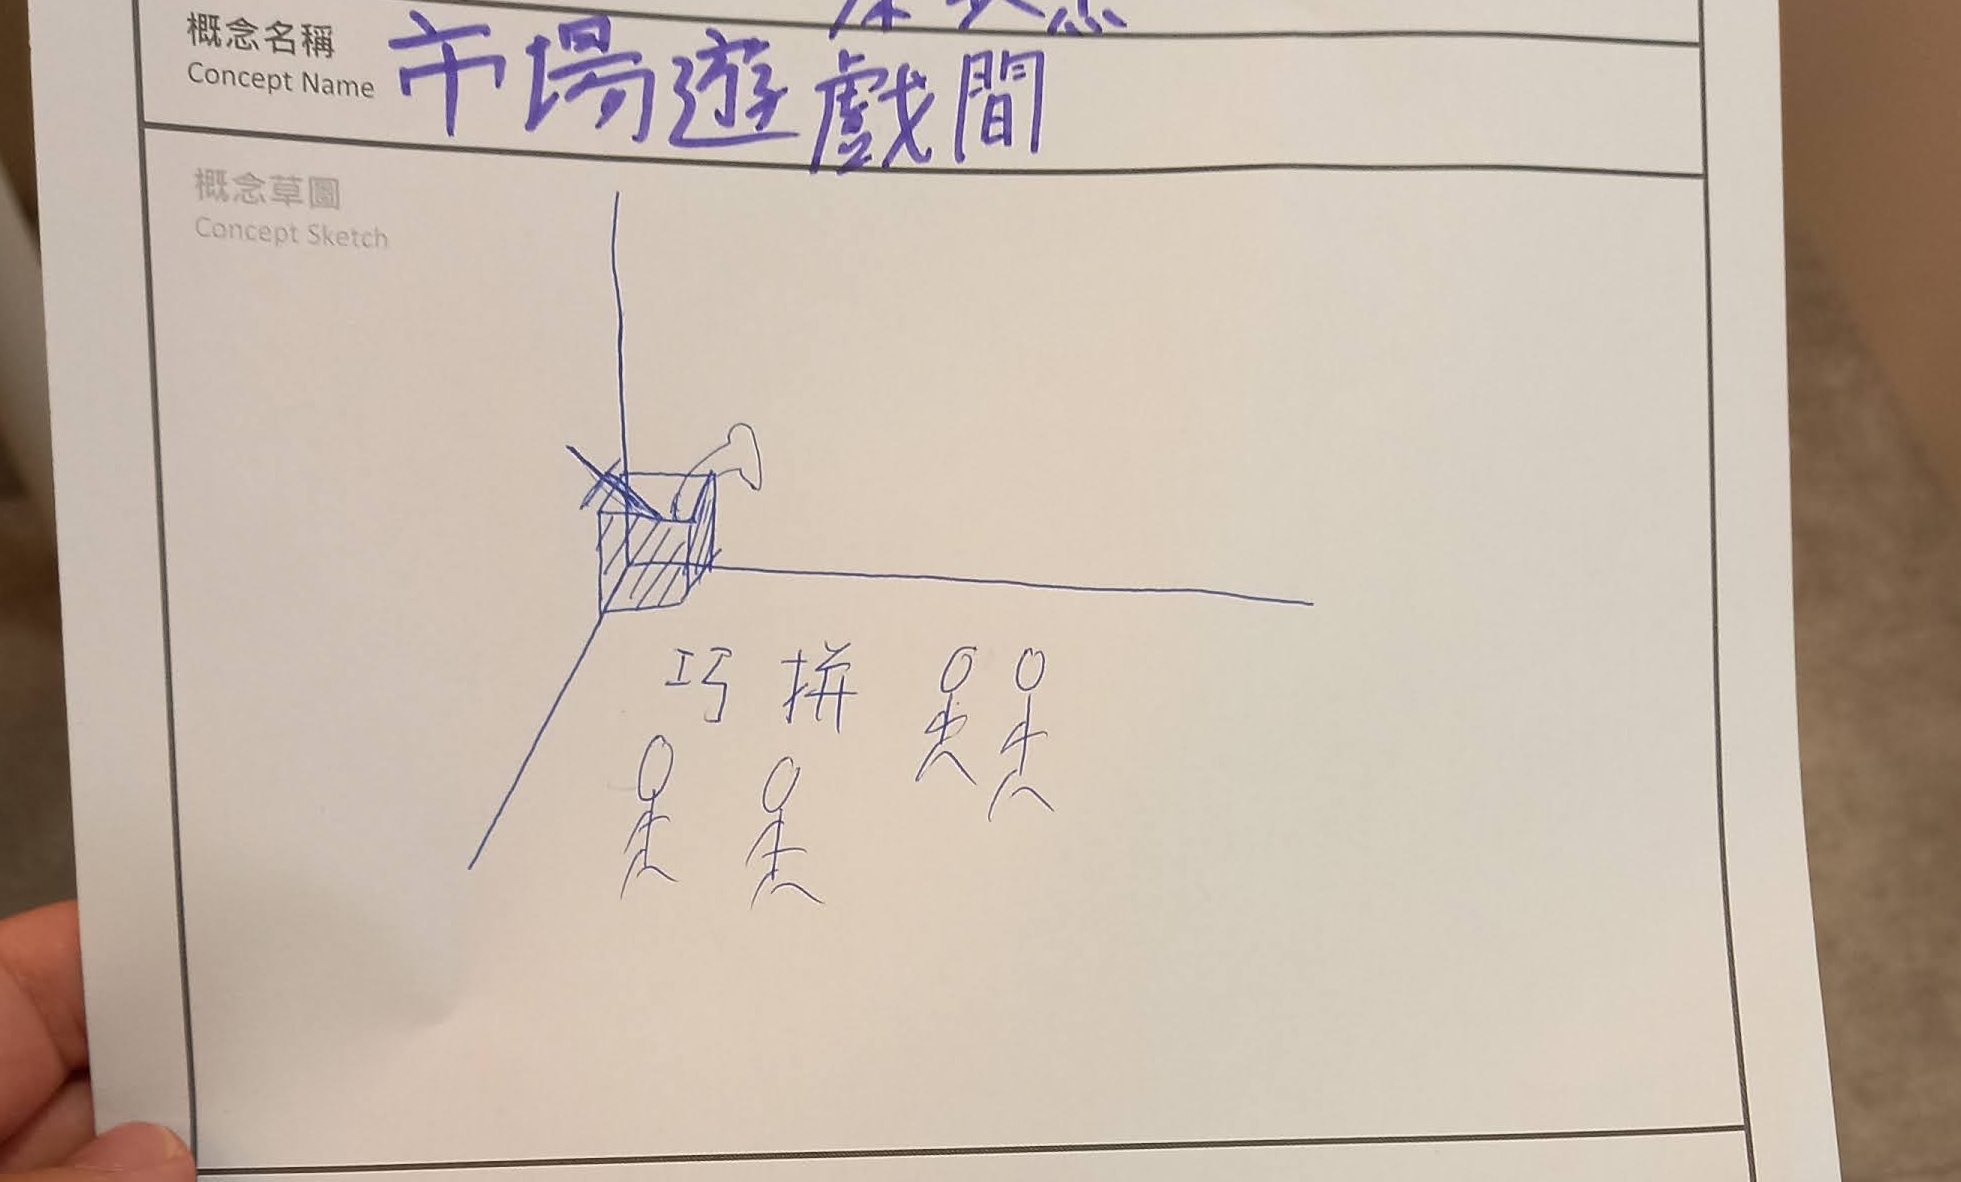 概念名稱
Concept Name
市場遊戲間
概念草圖
Concept Sketch
巧拼